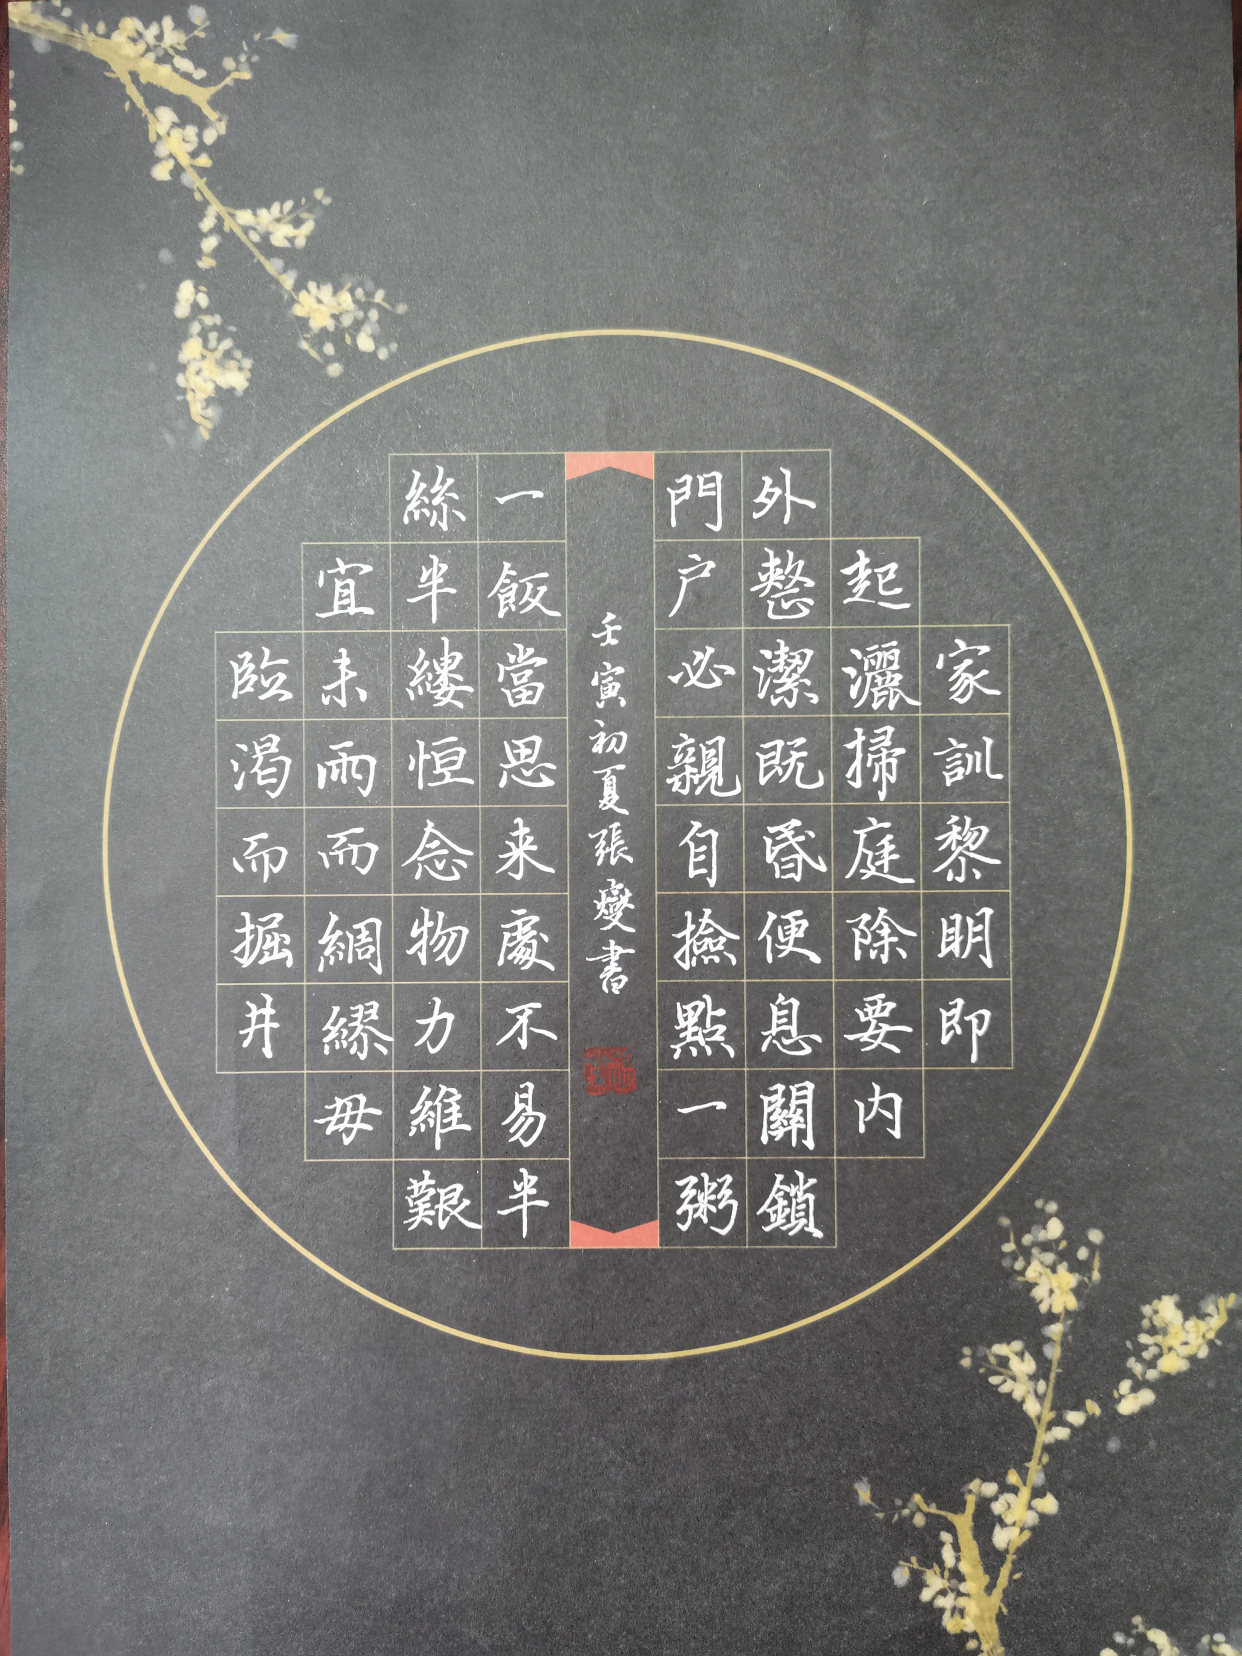 家訓黎明即
起灑掃庭除要内
外整潔既昏便息關鎖
門户必親自撿點一粥
一飯當思来處不易半
絲半縷恒念物力維艱
宜未雨而綢繆毋
臨渴而掘井
壬寅初夏張燮書